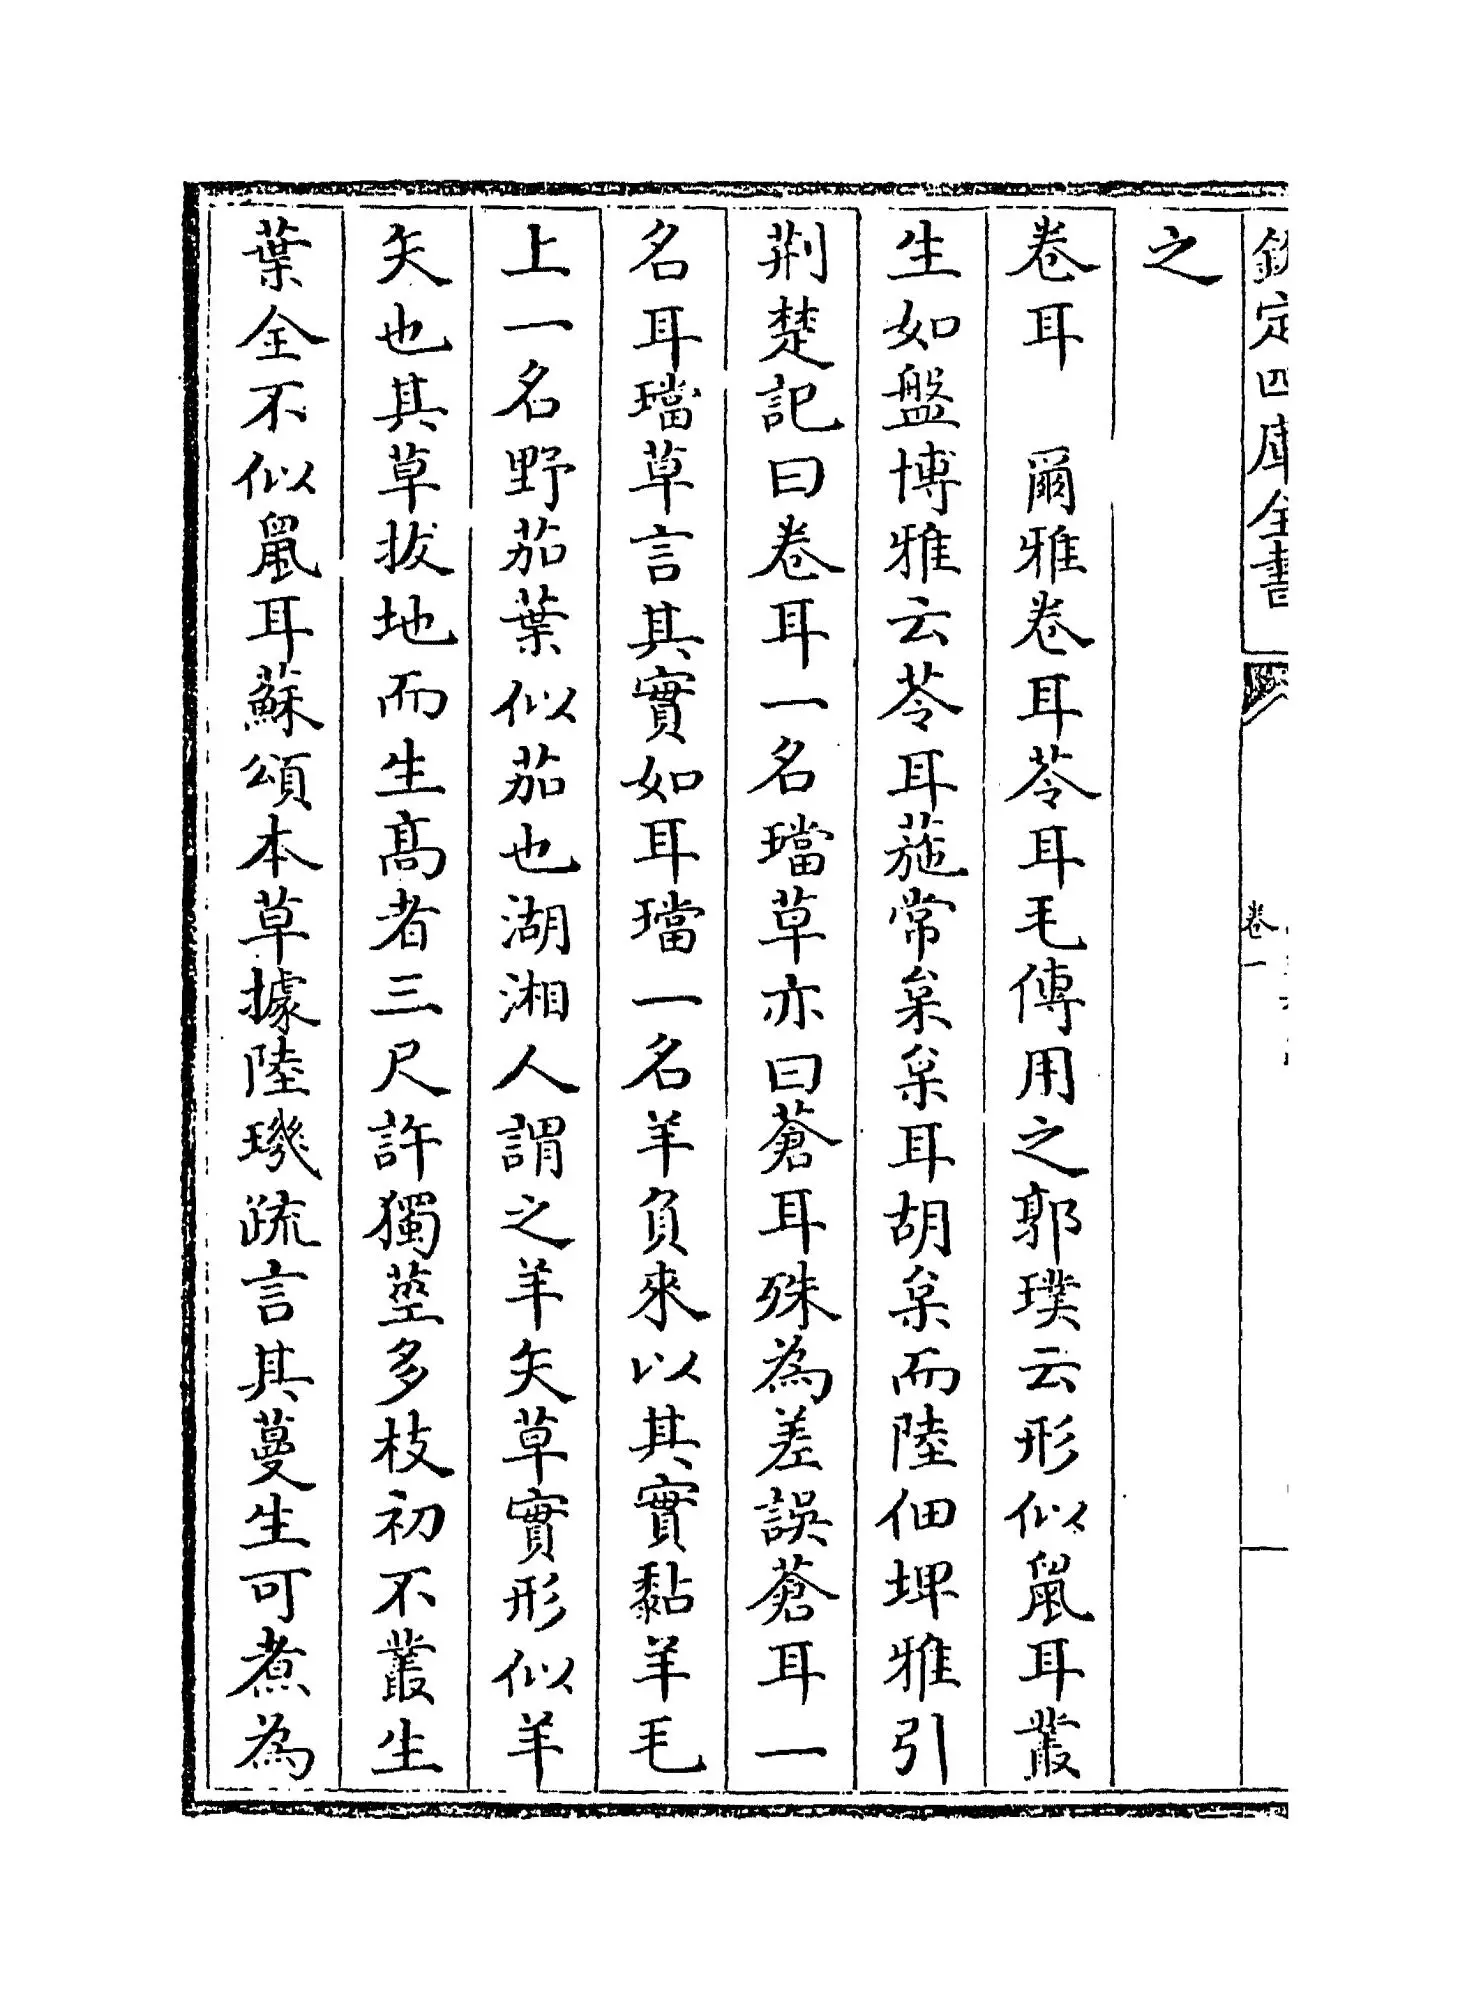 欽定四庫全書
卷一
之
卷耳　爾雅卷耳苓耳毛傳用之郭璞云形似鼠耳叢
生如盤博雅云苓耳葹常枲枲耳胡枲而陸佃埤雅引
荆楚記曰卷耳一名璫草亦曰蒼耳殊為差誤蒼耳一
名耳璫草言其實如耳璫一名羊負來以其實黏羊毛
上一名野茄葉似茄也湖湘人謂之羊矢草實形似羊
矢也其草拔地而生髙者三尺許獨莖多枝初不叢生
葉全不似鼠耳蘇頌本草據陸璣疏言其蔓生可煮為